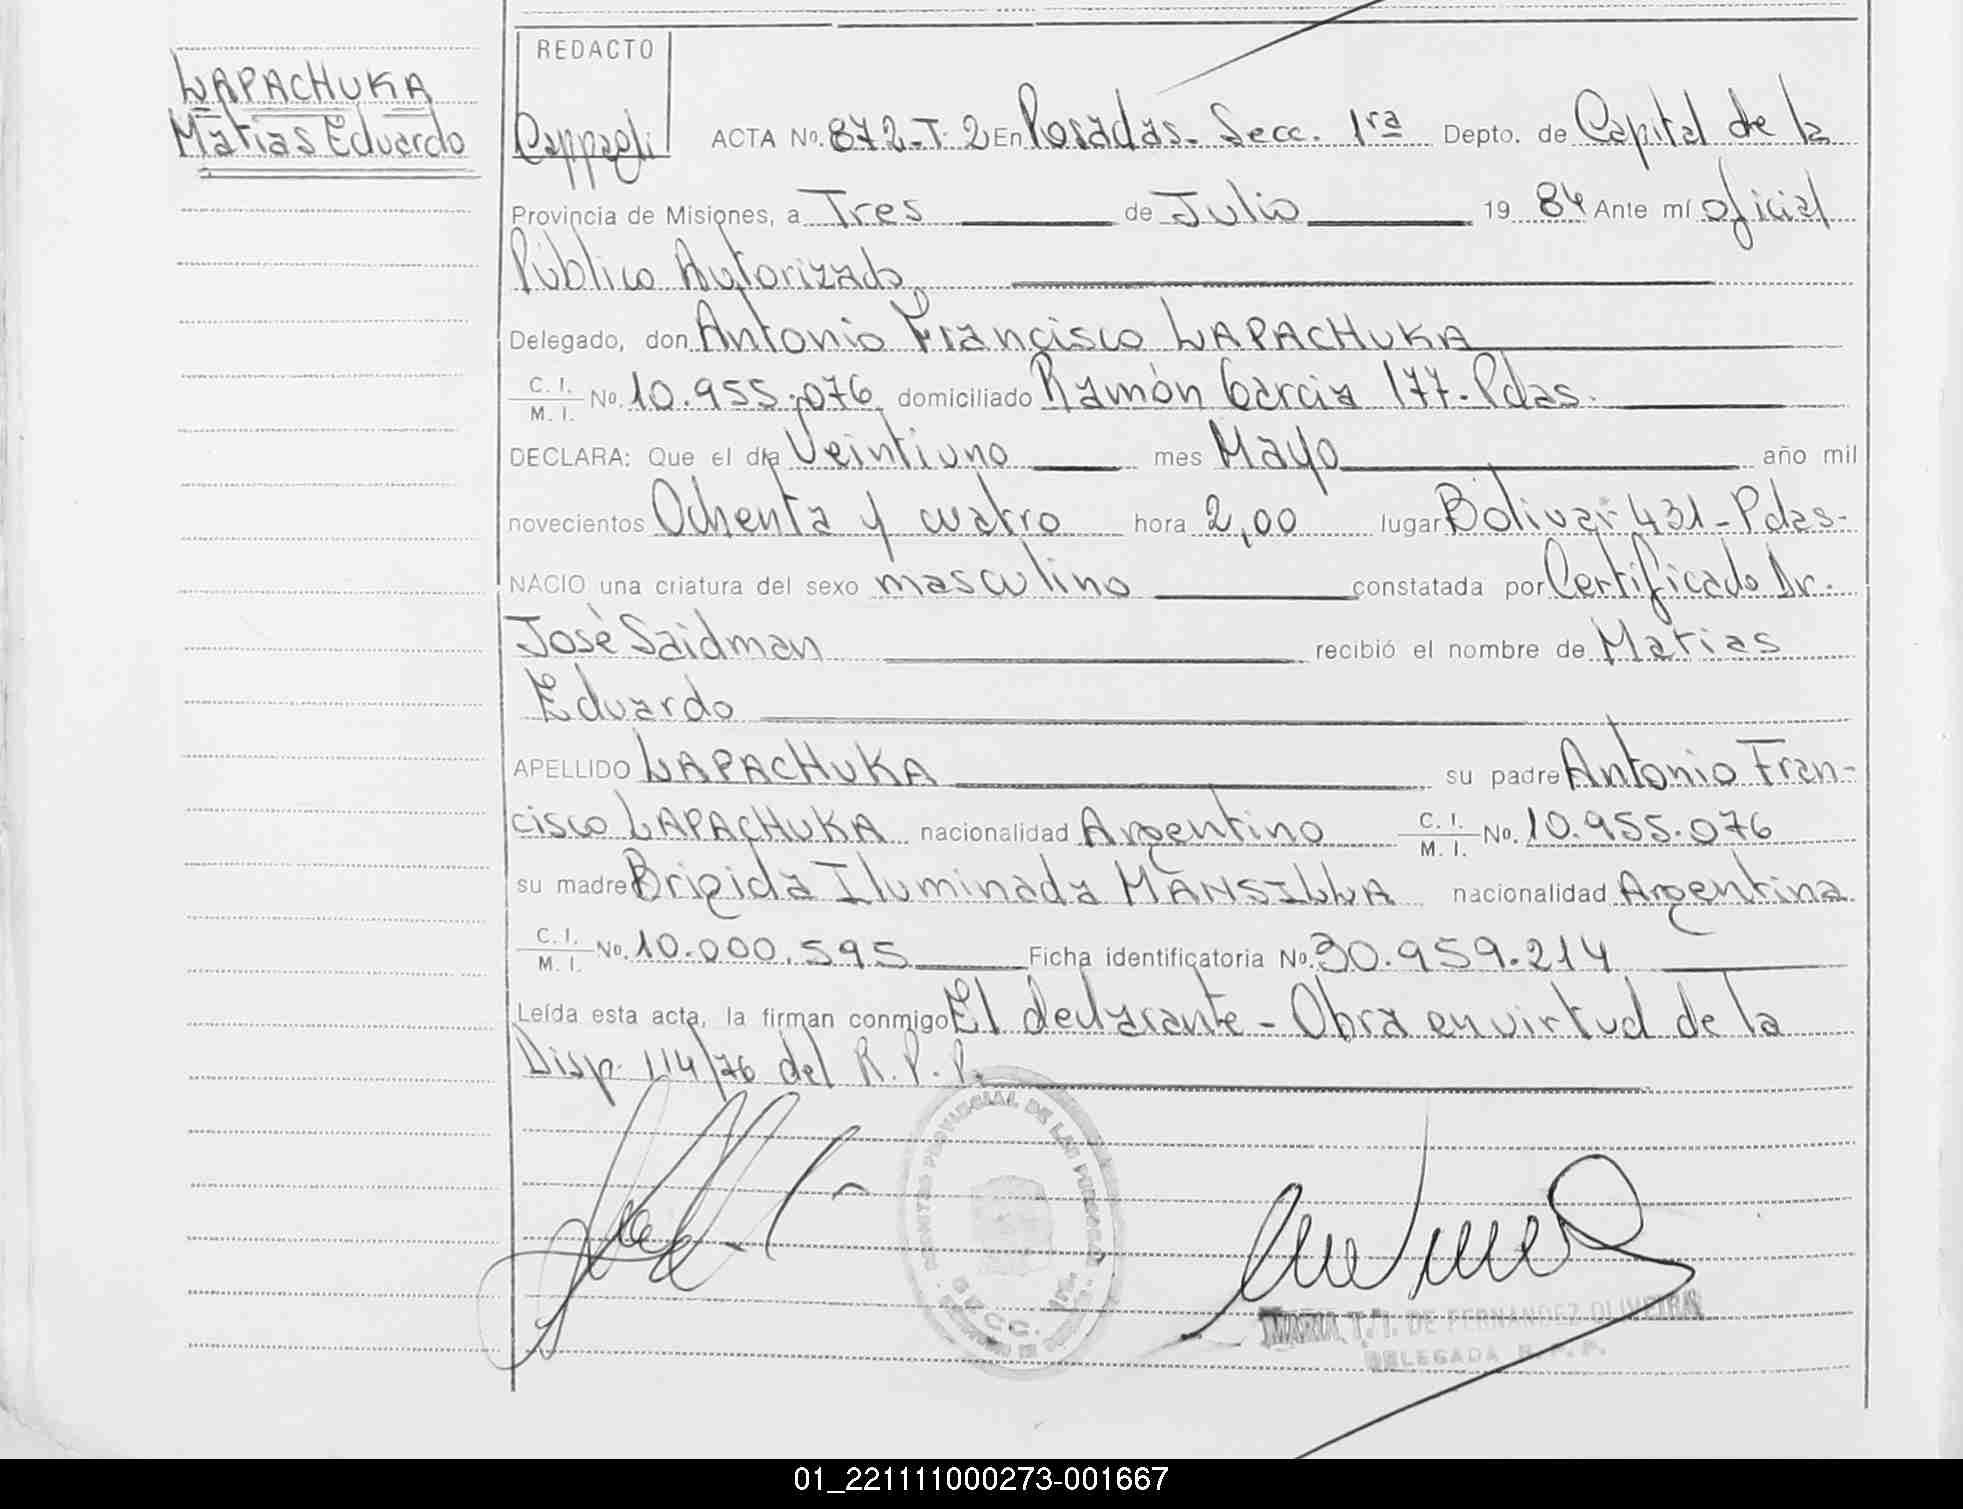 REDACTO
LAPACHUKA
Matias Eduardo
Cappagli ACTA No. 872-T-2 En Posadas- Secc. 1ra Depto. de Capital de la
Provincia de Misiones, a Tres de Julio 19 84 Ante mí oficial
Público Autorizado
Delegado, don Antonio Francisco LAPACHUKA
C. I. M. I. No. 10.955.076 domiciliado Ramón Garcia 177.Pdas.
DECLARA: Que el día Veintiuno mes Mayo año mil
novecientos Ochenta y cuatro hora 2,00 lugar Bolivar 431-Pdas-
NACIO una criatura del sexo masculino constatada por Certificado Dr.
José Saidman recibió el nombre de Matias
Eduardo
APELLIDO LAPACHUKA su padre Antonio Fran-
cisco LAPACHUKA nacionalidad Argentino C. I. M. I. No. 10.955.076
su madre Brigida Iluminada MANSILLA nacionalidad Argentina
C. I. M. I. No. 10.000.595 Ficha identificatoria No. 30.959.214
Leída esta acta, la firman conmigo El declarante - Obra en virtud de la
Disp. 114/76 del R.P.P.
PROVINCIAL DE LAS PERSONAS
SECC.
MARIA T. I. DE FERNANDEZ OLIVEIRA
DELEGADA R. P. P.
01_221111000273-001667